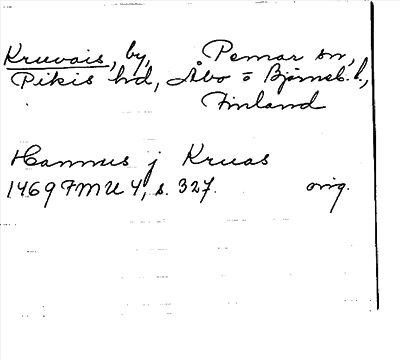 Kruvais, by, Pemar sn,
Pikis hd, Åbo o Björneb. l.,
Finland
Hannus j Kruas
1469 FMU 4, s. 327. orig.